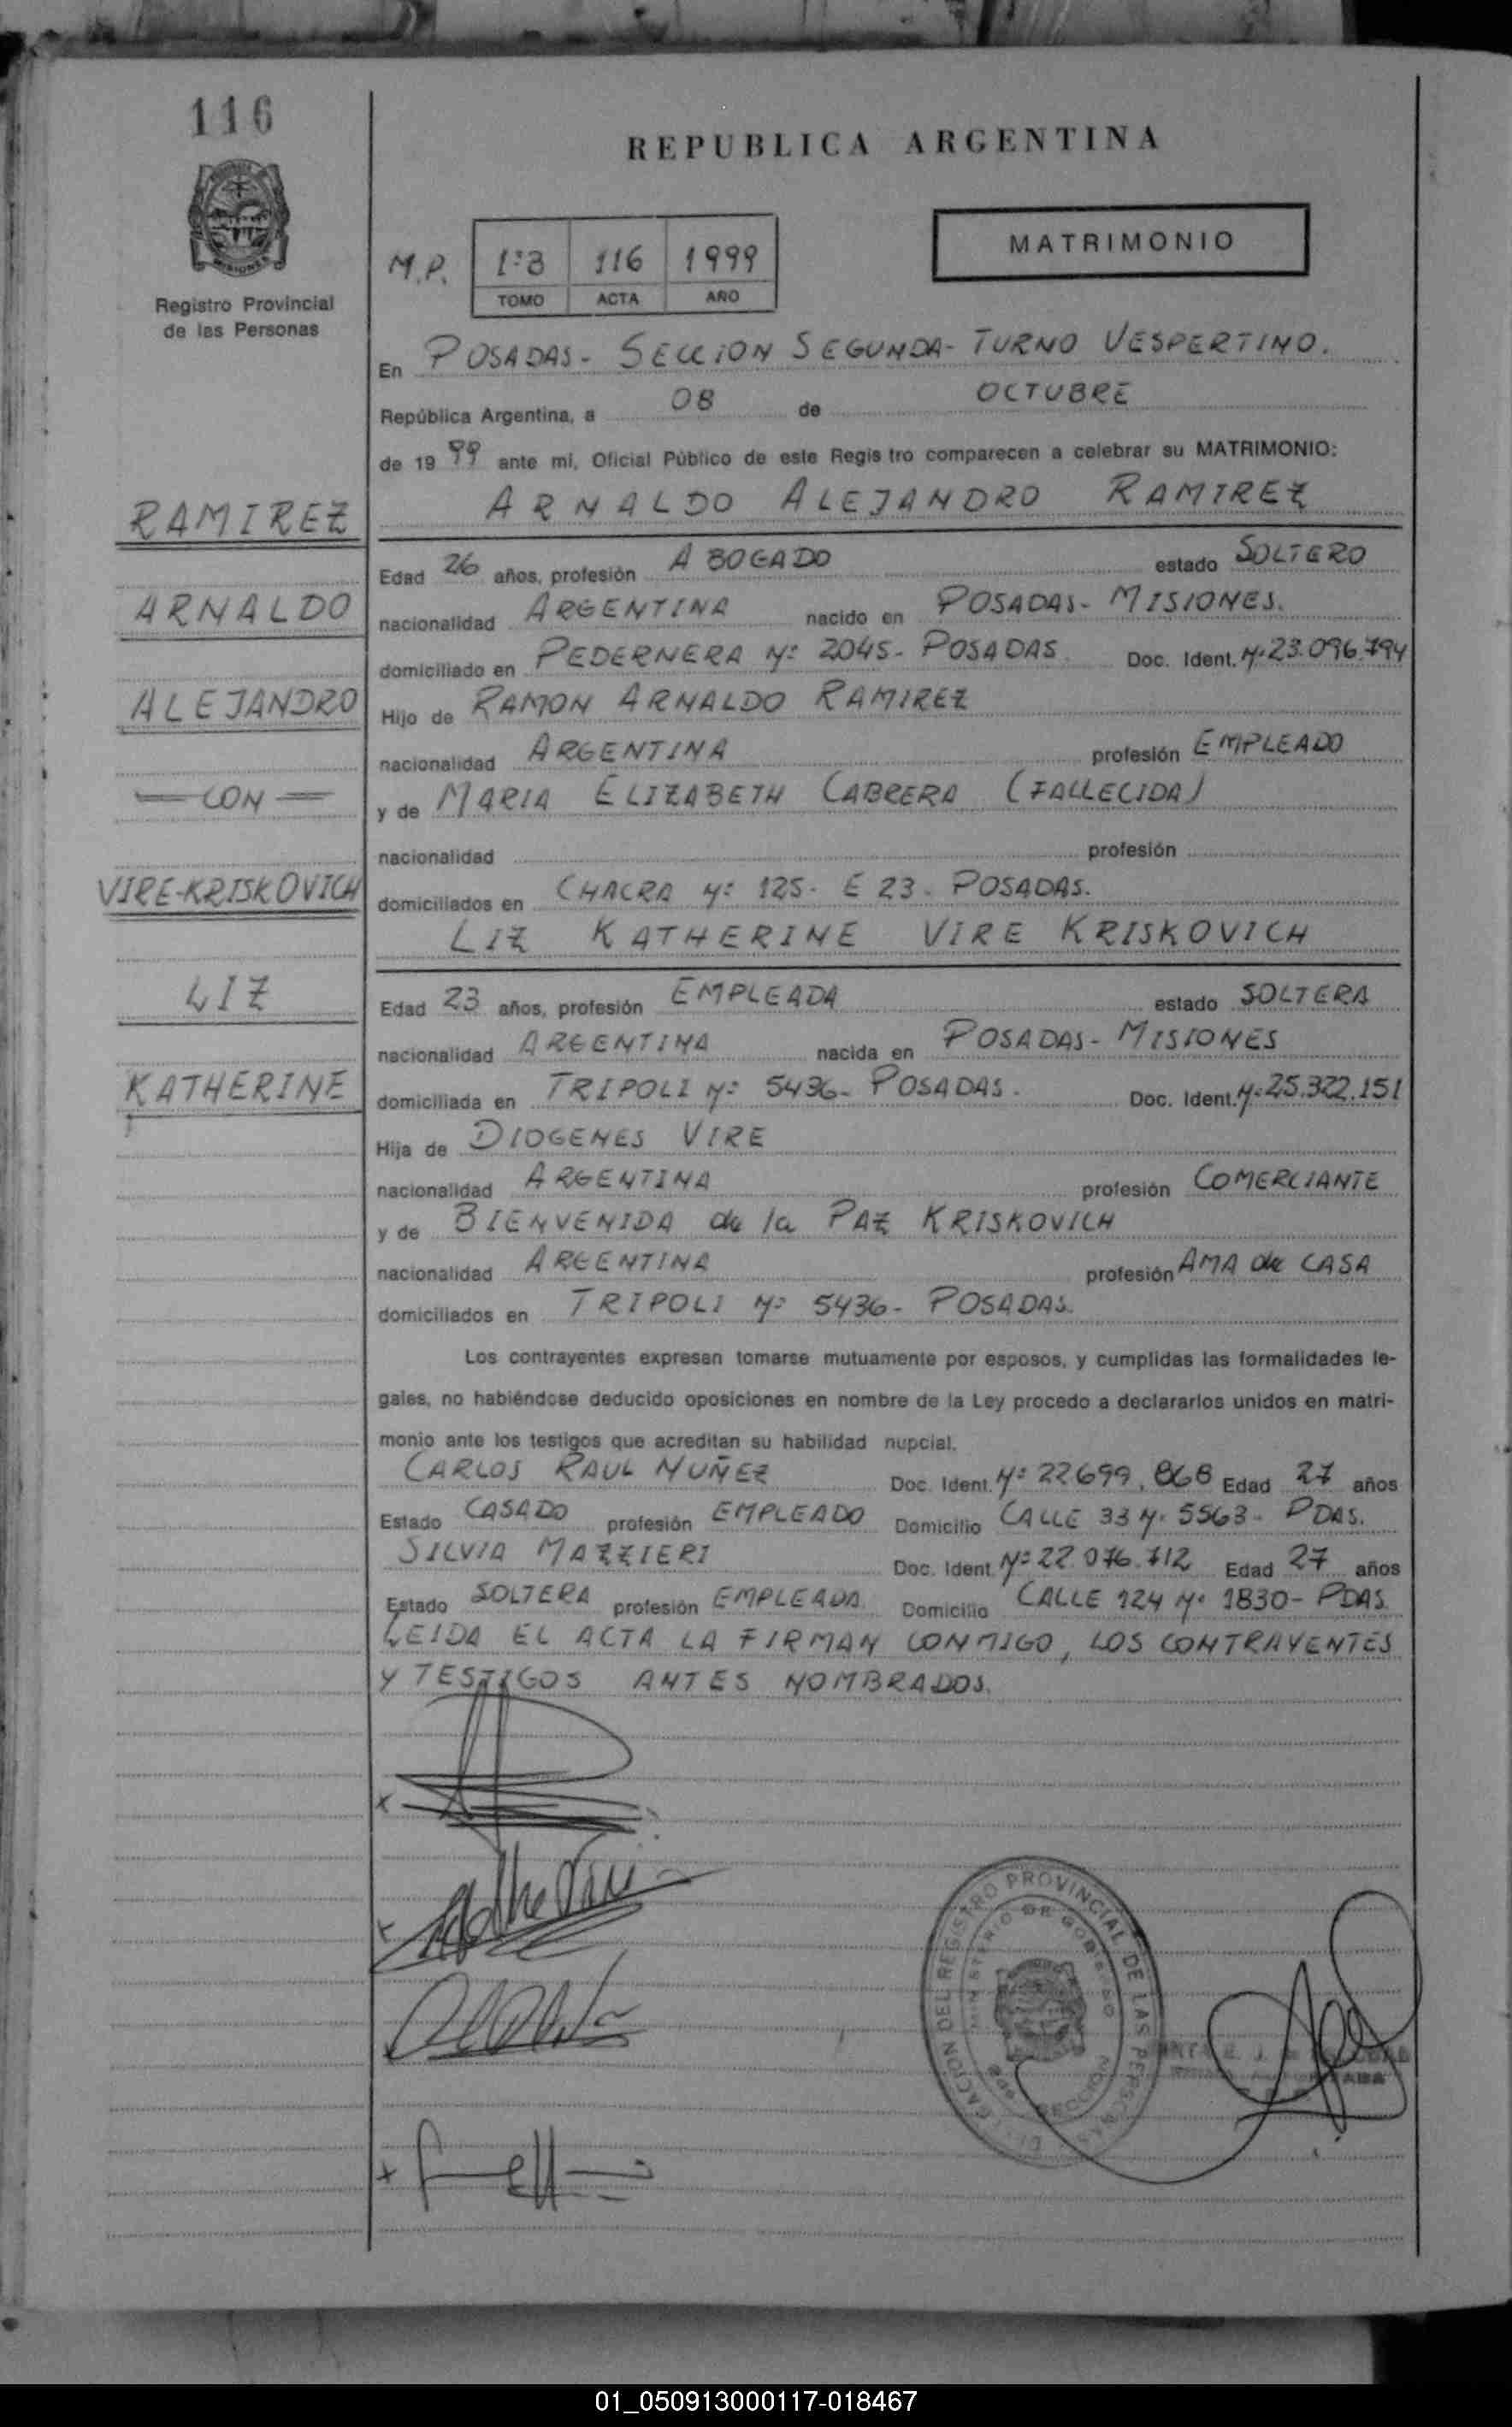 116
REPUBLICA ARGENTINA
MISIONES
Registro Provincial
de las Personas
M.P. 1º3 116 1999
TOMO ACTA AÑO
MATRIMONIO
En POSADAS - SECCION SEGUNDA - TURNO VESPERTINO.
República Argentina, a 08 de OCTUBRE
de 19 99 ante mi, Oficial Público de este Regis tro comparecen a celebrar su MATRIMONIO:
RAMIREZ
ARNALDO
ALEJANDRO
CON
VIRE-KRISKOVICH
LIZ
KATHERINE
ARNALDO ALEJANDRO RAMIREZ
Edad 26 años, profesión ABOGADO estado SOLTERO
nacionalidad ARGENTINA nacido en POSADAS - MISIONES.
domiciliado en PEDERNERA Nº 2045 - POSADAS. Doc. Ident. Nº 23.096.794
Hijo de RAMON ARNALDO RAMIREZ
nacionalidad ARGENTINA profesión EMPLEADO
y de MARIA ELIZABETH CABRERA (FALLECIDA)
nacionalidad profesión
domiciliados en CHACRA Nº 125 - E 23 - POSADAS.
LIZ KATHERINE VIRE KRISKOVICH
Edad 23 años, profesión EMPLEADA estado SOLTERA
nacionalidad ARGENTINA nacida en POSADAS - MISIONES
domiciliada en TRIPOLI Nº 5436 - POSADAS. Doc. Ident. Nº 25.322.151
Hija de DIOGENES VIRE
nacionalidad ARGENTINA profesión COMERCIANTE
y de BIENVENIDA de la PAZ KRISKOVICH
nacionalidad ARGENTINA profesión AMA de CASA
domiciliados en TRIPOLI Nº 5436 - POSADAS.
Los contrayentes expresan tomarse mutuamente por esposos, y cumplidas las formalidades le-
gales, no habiéndose deducido oposiciones en nombre de la Ley procedo a declararlos unidos en matri-
monio ante los testigos que acreditan su habilidad nupcial.
CARLOS RAUL NUÑEZ Doc. Ident. Nº 22699.868 Edad 27 años
Estado CASADO profesión EMPLEADO Domicilio CALLE 33 Nº 5563 - PDAS.
SILVIA MAZZIERI Doc. Ident. Nº 22.076.712 Edad 27 años
Estado SOLTERA profesión EMPLEADA Domicilio CALLE 124 Nº 1830 - PDAS.
LEIDA EL ACTA LA FIRMAN CONMIGO, LOS CONTRAYENTES
Y TESTIGOS ANTES NOMBRADOS.
DEL REGISTRO PROVINCIAL DE LAS PERSONAS
MINISTERIO DE GOBIERNO
01_050913000117-018467